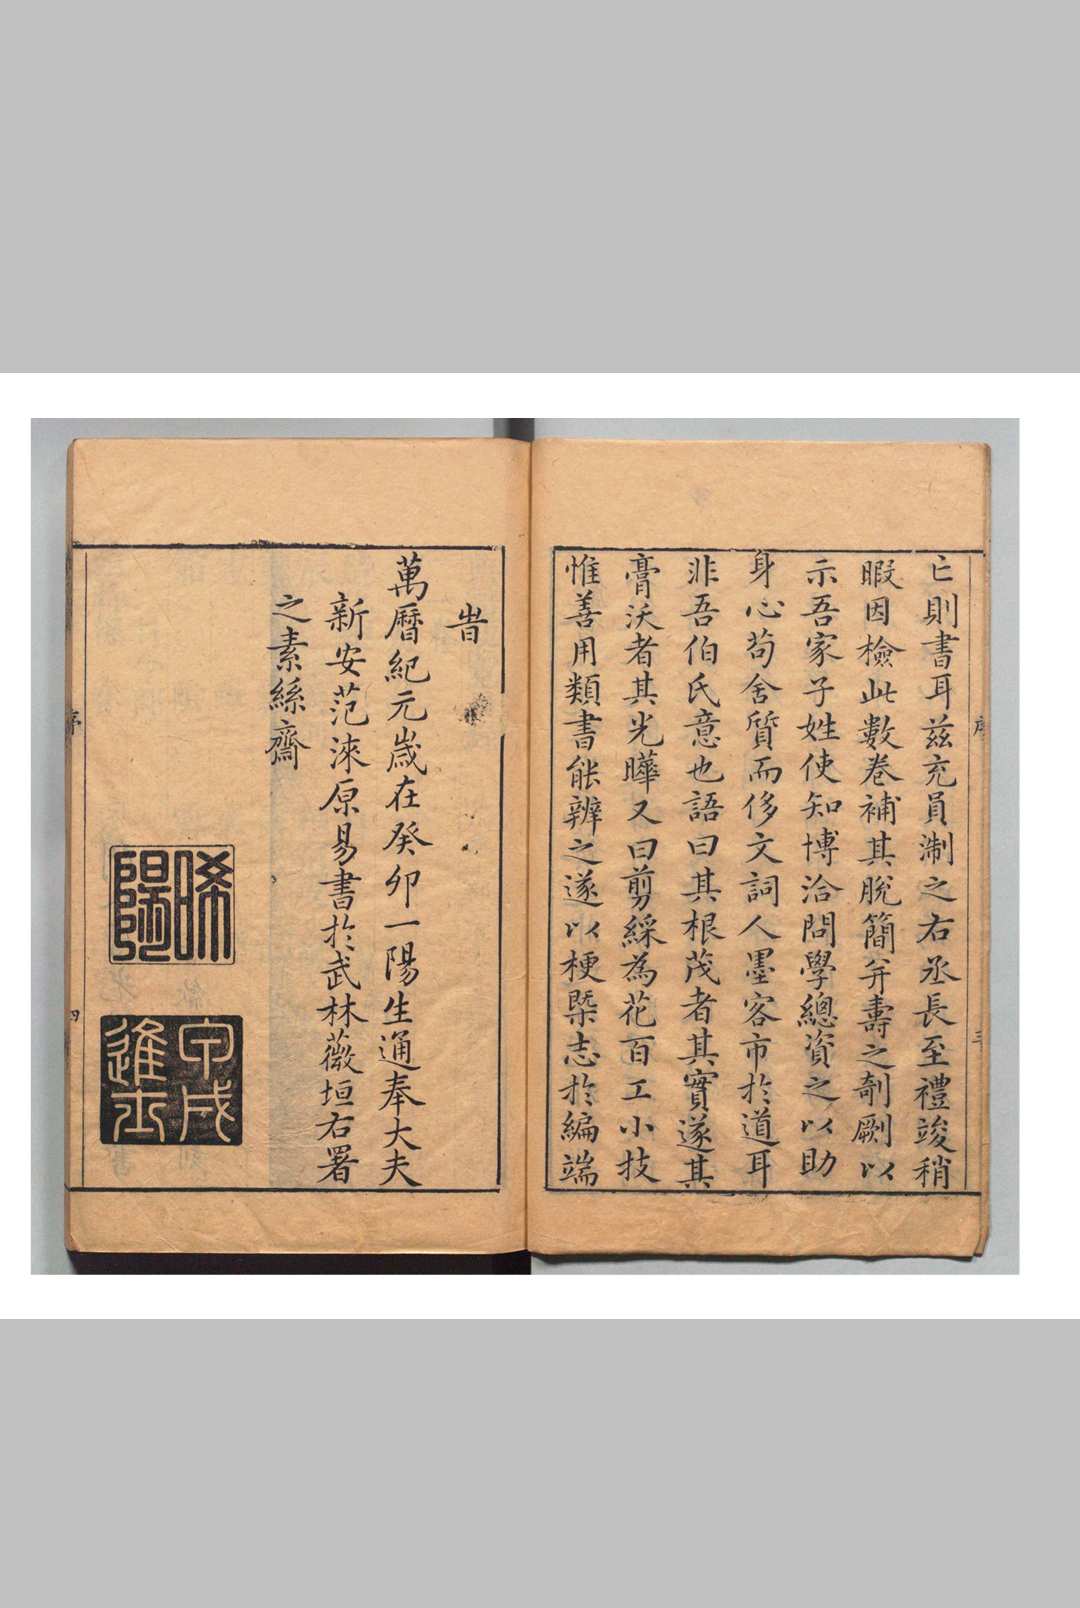 亡則書耳茲充員淛之右丞長至禮竣稍
暇因檢此數卷補其脫簡弁壽之剞劂以
示吾家子姓使知博洽問學總資之以助
身心苟舍質而侈文詞人墨客市於道耳
非吾伯氏意也語曰其根茂者其實遂其
膏沃者其光曄又曰剪綵為花百工小技
惟善用類書能辨之遂以梗槩志於編端
序
三
旹
萬曆紀元歲在癸卯一陽生通奉大夫
新安范淶原易書於武林薇垣右署
之素絲齋
晞陽
甲戌進士
序
四